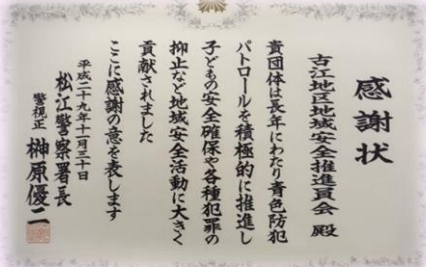 感謝状
古江地区地域安全推進員会 殿
貴団体は長年にわたり青色防犯
パトロールを積極的に推進し
子どもの安全確保や各種犯罪の
抑止など地域安全活動に大きく
貢献されました
ここに感謝の意を表します
平成二十九年十一月三十日
松江警察署長
警視正 榊原優二